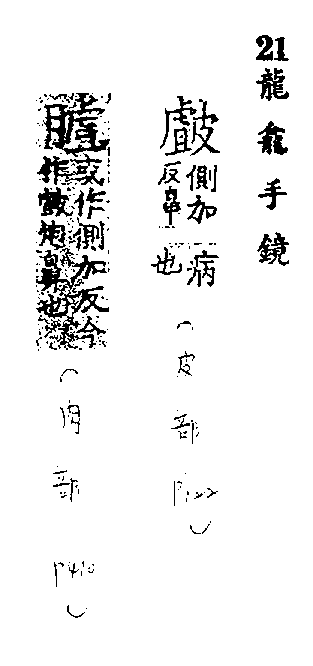 21龍龕手鏡
皻側加反鼻病也（皮部P122）
䐒或作側加反今作皻皰鼻也（肉部P410）